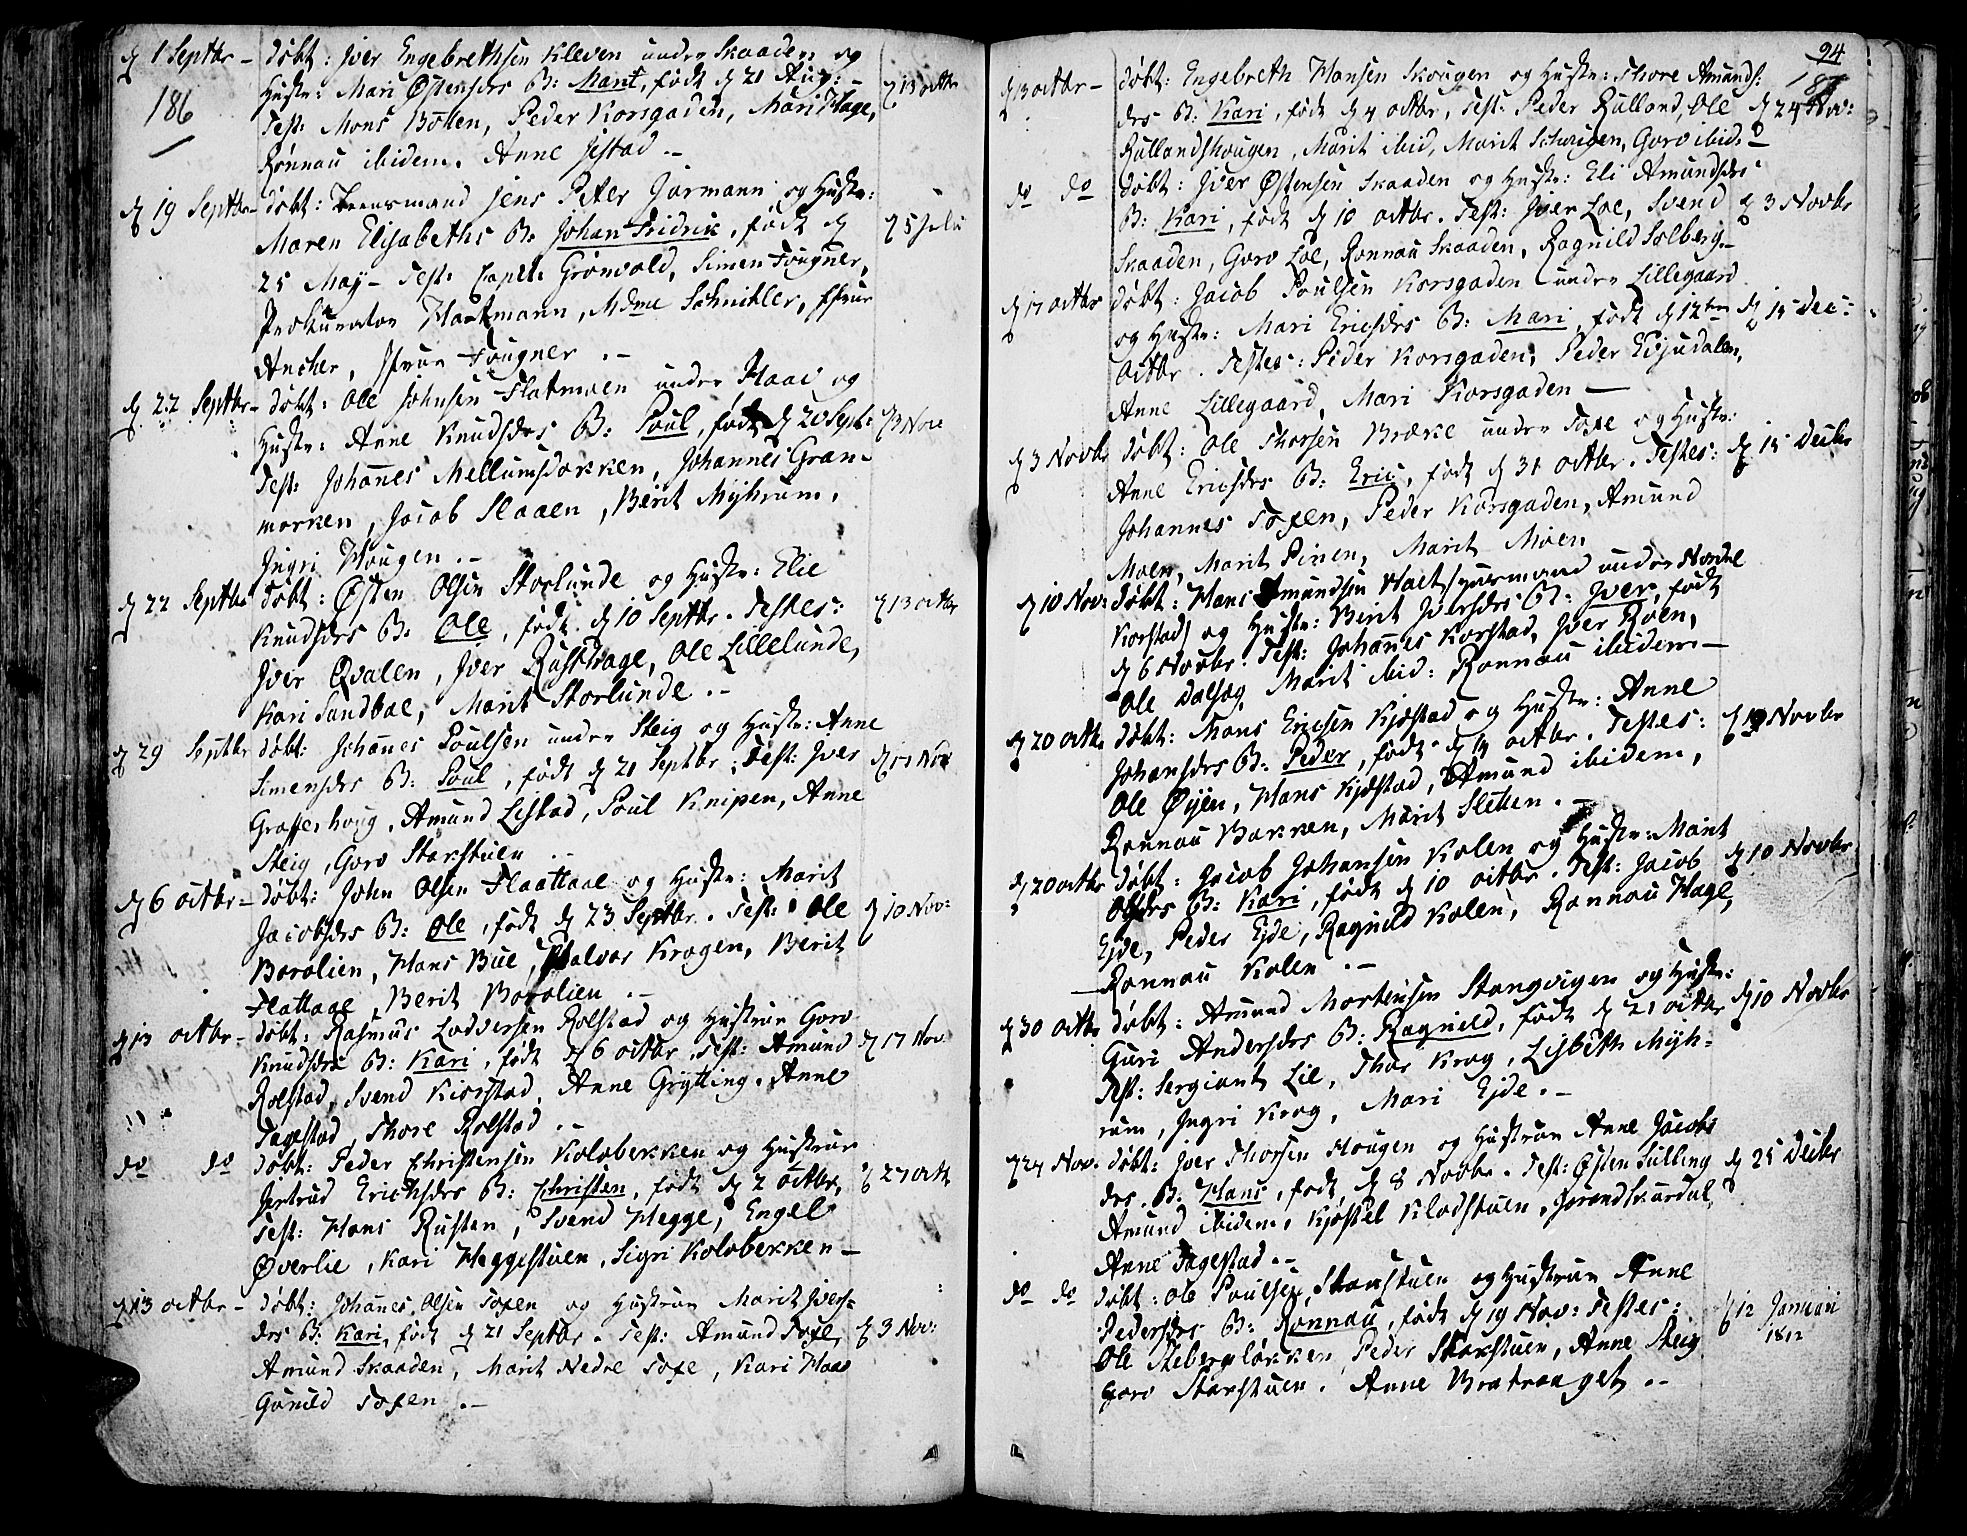 d 1 Septbr – døbt: Iver Engebrethsen Kleven under Skaaden og
186
Hustr: Mari Østensdrs B: Marit, født d 21 Aug: – d 13 octbr
Test: Mons Bøkken, Peder Korsgaden, Mari Hage,
Rønnau ibidem. Anne Jestad –
d 19 Septbr – døbt: Leensmand Jens Peter Jormann og Hustr:
Maren Elisabeths B: Johan Fridrik, født d
d 5 Julii
25 May – Test: Capt: Grønvold, Simen Fougner,
Prokurator Hartmann, Mdme Schnitler, Frue
Ancher, Frue Fougner . –
d 22 Septbr – døbt: Ole Johnsen Flatmoen under Haav og
Hustr: Anne Knudsdrs B: Poul, født d 20 Sept: d 3 Nov
Test: Johannes Mellumsløkken, Johannes Gran-
morken, Jacob Slaaen, Berit Myhrum,
Ingri Hougen . –
d 22 Septbr døbt: Østen Olsen Storlunde og Hustr: Elie
Knudsdrs B: Ole, født d 10 Septbr. Testes: d 13 octbr
Iver Qvalen, Iver Rusthage, Ole Lillelunde,
Kari Sandboe, Marit Storlunde . –
d 29 Septbr døbt: Johanes Poulsen under Steig og Hustr: Anne
Simensdrs B: Poul, født d 21 Septbr. Test: Iver d 17 Nov
Graffer houg, Amund Listad, Poul Knipen, Anne
Steig, Goro Stokstuen . .
d 6 octbr – døbt: John Olsen Flaattaae og Hustr: Marit
Jacobsdrs B: Ole, født d 23 Septbr. Test: Ole d 10 Nov:
Borolien, Hans Bue, Halvor Krogen, Berit
Flattaae, Berit Borolien . –
d 13 octbr – døbt: Rasmus Lodversen Rolstad og Hustrue Goro
Knudsdrs B: Kari, født d 6 octbr. Test: Amund d 17 Nov
Rolstad, Svend Kiorstad, Anne Grytting. Anne
Fagestad, Thore Rolstad . –
do do døbt: Peder Christensen Kolobekken og Hustrue
Jertrud Erichsdrs B: Christen, født d 2 octbr, d 27 octb
Test: Hans Rusten, Svend Hegge, Engel
Øverlie, Kari Heggestuen, Sigri Kolobekken –
d 13 octbr – døbt: Johanes Olsen Toxen og Hustrue Marit Ivers-
drs B: Kari, født d 21 Septbr. Test: Amund Toxe, d 3 Nov:
Amund Skaaden, Marit Nedre Toxe, Kari Haav
Gunild Toxen . –
94
187
d 13 octbr – døbt: Engebreth Hansen Skougen og Hustr: Thore Amunds:
drs B: Kari, født d 4 octbr, Test: Peder Rulland, Ole d 24 Nov:
Rullandshougen, Marit ibid, Marit Schougen, Goro ibid: –
do do døbt: Iver Østensen Skaaden og Hustr: Eli Amundsdrs
B: Kari, født d 10 octbr. Test: Iver Loe, Svend d 3 Novbr
Skaaden, Goro Loe, Ronnau Skaaden, Ragnild Solberg –
d 17 octbr døbt: Jacob Poulsen Korsgaden under Lillegaard
og Hustr: Mari Ericsdrs B: Mari, født d 12ten d 15 Dec:
Octbr. Testes: Peder Korsgaden, Peder Edjudalen,
Anne Lillegaard, Mari Korsgaden –
d 3 Novbr døbt: Ole Thorsen Bræke under Toxe og Hustr:
Anne Ericsdrs B: Eric, født d 31 octbr. Testes: d 15 Decbr
Johannes Toxen, Peder Korsgaden, Amund
Moen, Marit Pinen, Marit Moen
d 10 Nov: døbt: Hans Amundsen Hatt husmand under Nordre
Korstad og Hustr: Berit Iversdrs B: Iver, født
d 6 Novbr. Test: Johannes Korstad, Iver Roen,
Ole Dalseg, Marit ibid: Ronnau ibidem –
d 20 octbr døbt: Mons Ericsen Kjøstad og Hustr: Anne
Johansdrs B: Peder, født d 14 octbr. Testes: d 10 Novbr
Ole Øyen, Hans Kjøstad, Amund ibidem,
Ronnau Bakken, Marit Sletten . –
d 20 octbr døbt: Jacob Johansen Kolen og Hustr: Marit
Olsdrs B: Kari, født d 10 octbr. Test: Jacob d 10 Novbr
Ejde, Peder Ejde, Ragnild Kolen, Ronnau Hage,
Ronnau Kolen . –
d 30 octbr døbt: Amund Mortensen Stangvigen og Hustr:
Guri Andersdrs B: Ragnild, født d 21 octbr d 10 Novbr
Test: Sergiant Lie, Thor Krog, Lisbeth Myh-
rum, Ingri Krog, Mari Ejde . –
d 24 Nov. døbt: Iver Thorsen Hougen og Hustrue Anne Jacobs
drs. B: Hans, født d 8 Novbr. Test: Østen Sulling d 25 Decbr
Amund ibidem, Kjøstel Klodstuen, Jorand Skurdal,
Anne Fagestad . –
do do døbt: Ole Poulsen Stokstuen og Hustrue Anne
Pedersdrs B: Ronnau, født d 19 Nov: Testes: d 12 Januari
1812
Ole Stebergløkken, Peder Stokstuen, Anne Steig
Goro Stokstuen. Anne Bratraaget . –